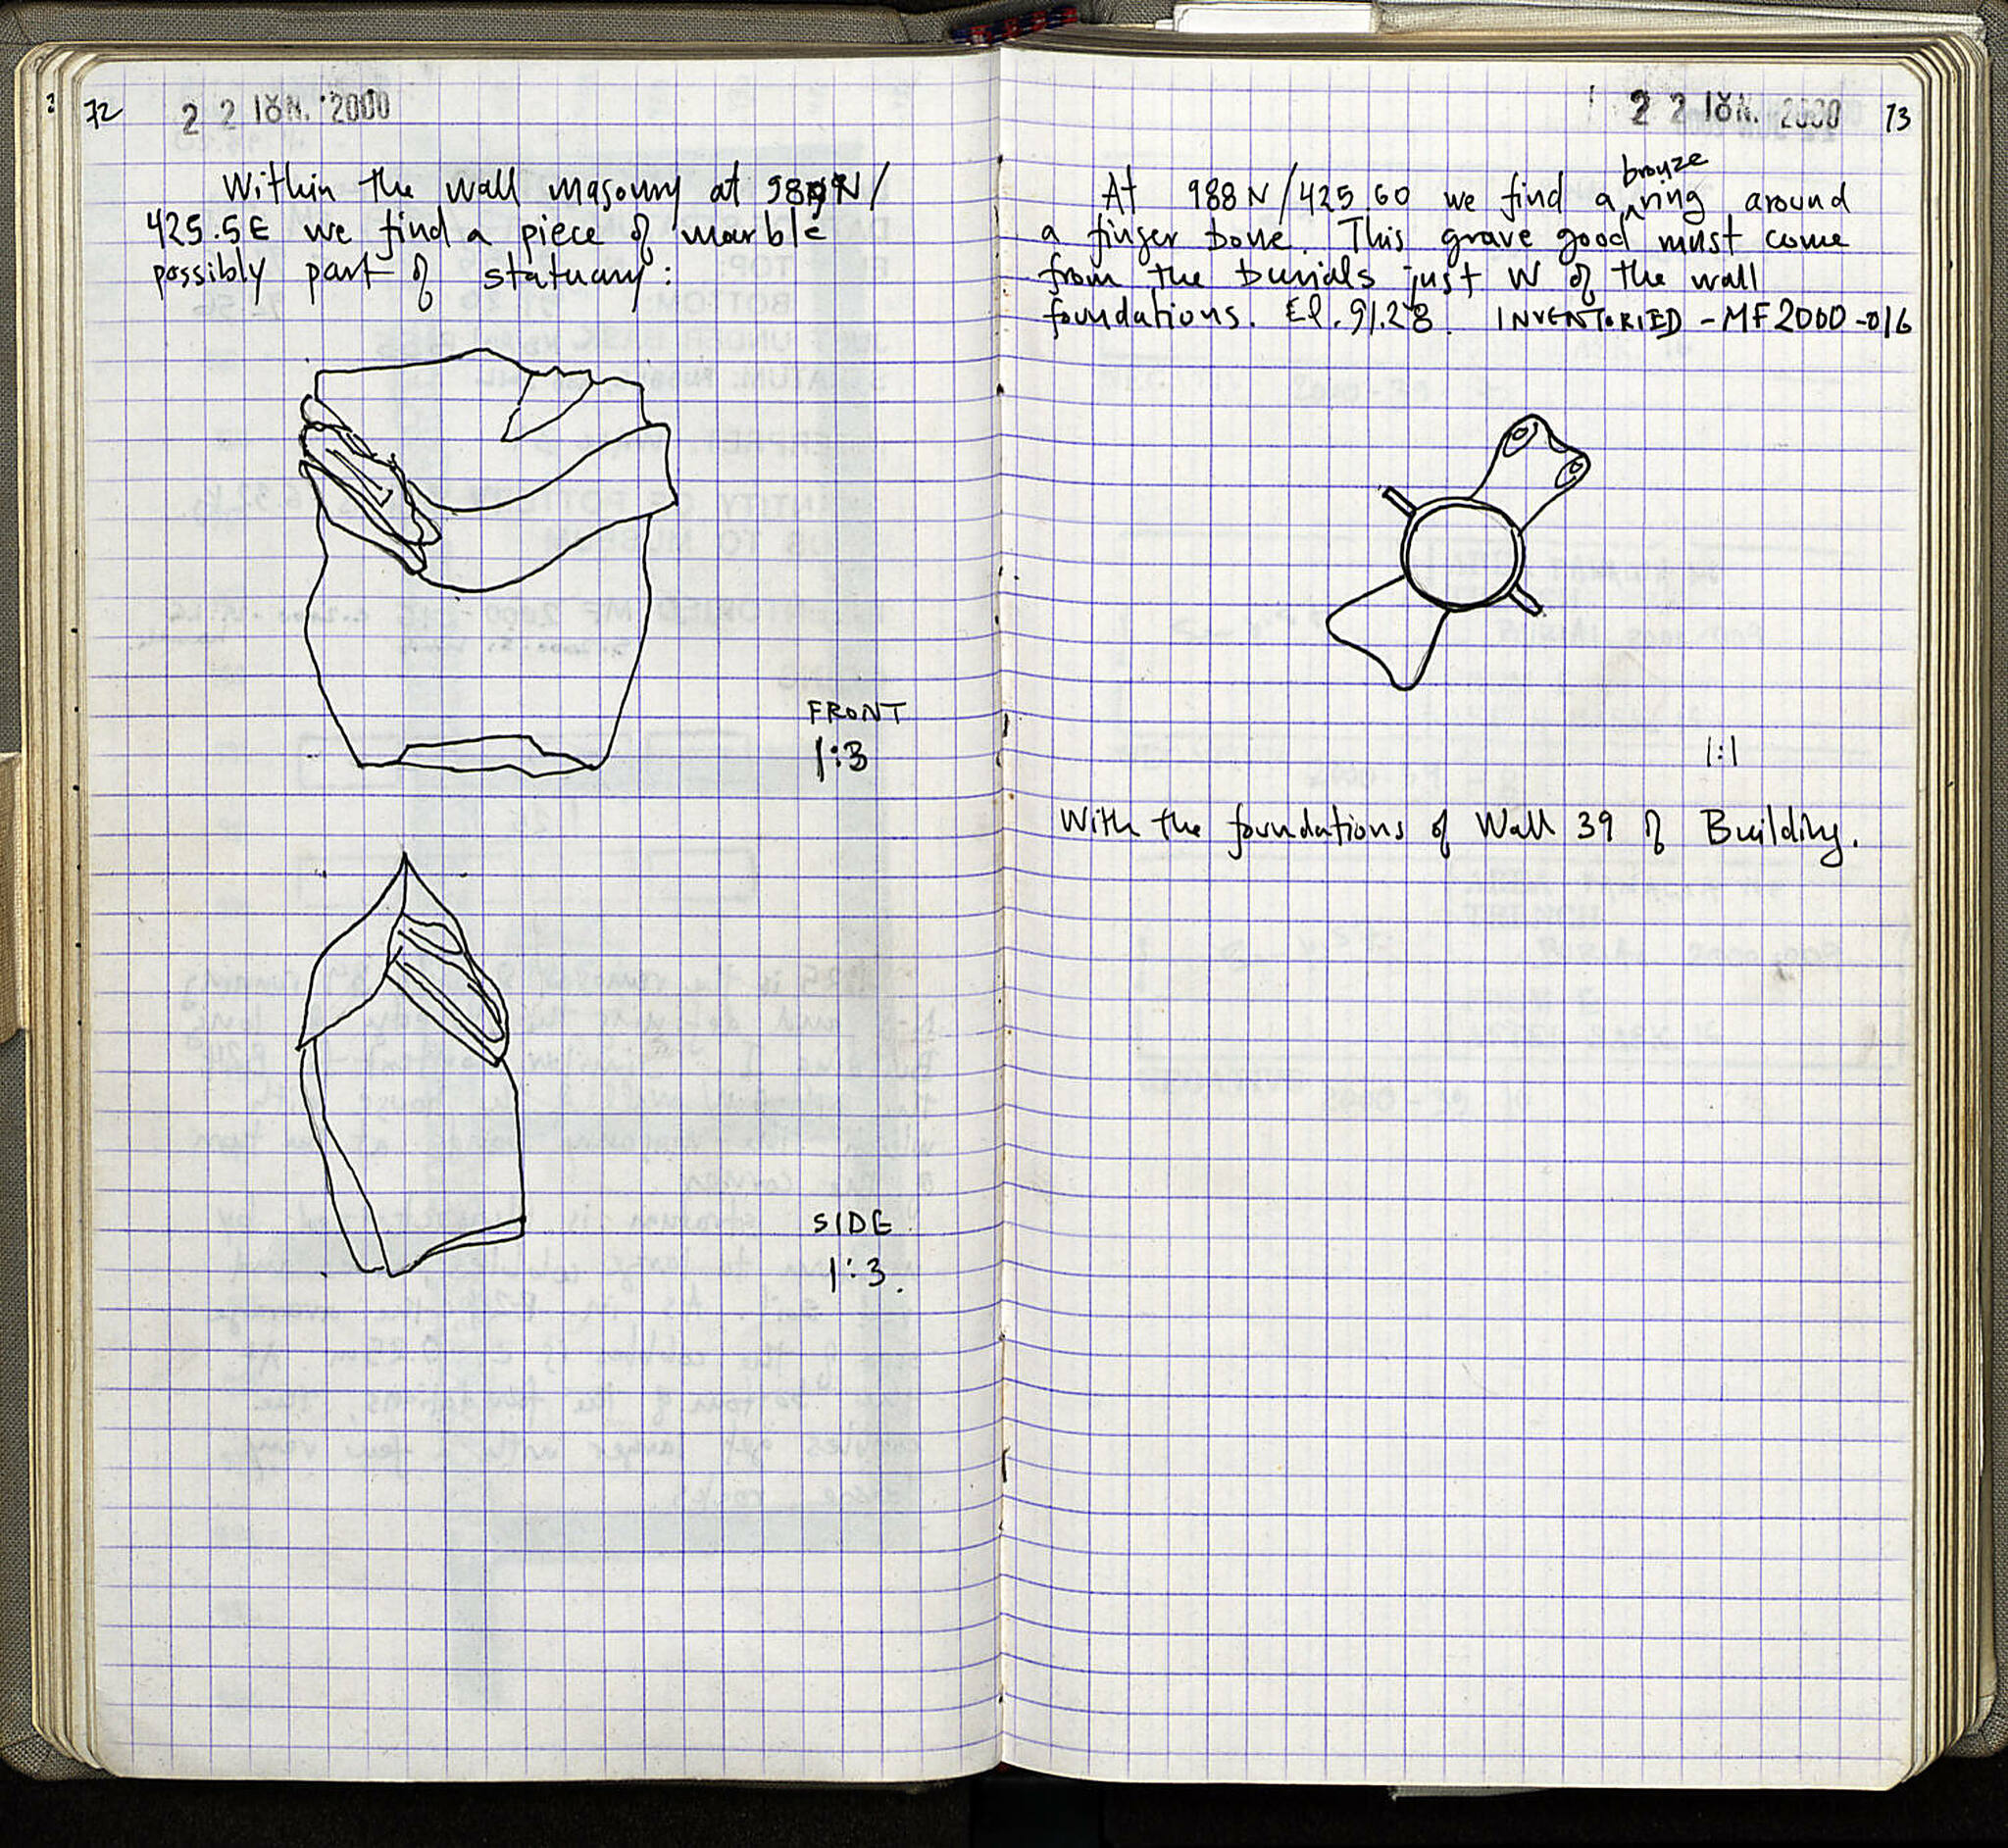 72
22 ΙΟΥΝ. 2000
Within the wall masonry at N/
425.5E we find a piece of marble
possibly part of statuary:
FRONT
1:3
SIDE
1:3.
22 ΙΟΥΝ. 2000
73
bronze
At 988N/425.60 we find a ring around
a finger bone. This grave good must come
from the burials just W of the wall
foundations. El. 91.28. INVENTORIED - MF2000-016
1:1
With the foundations of Wall 39 of Building.